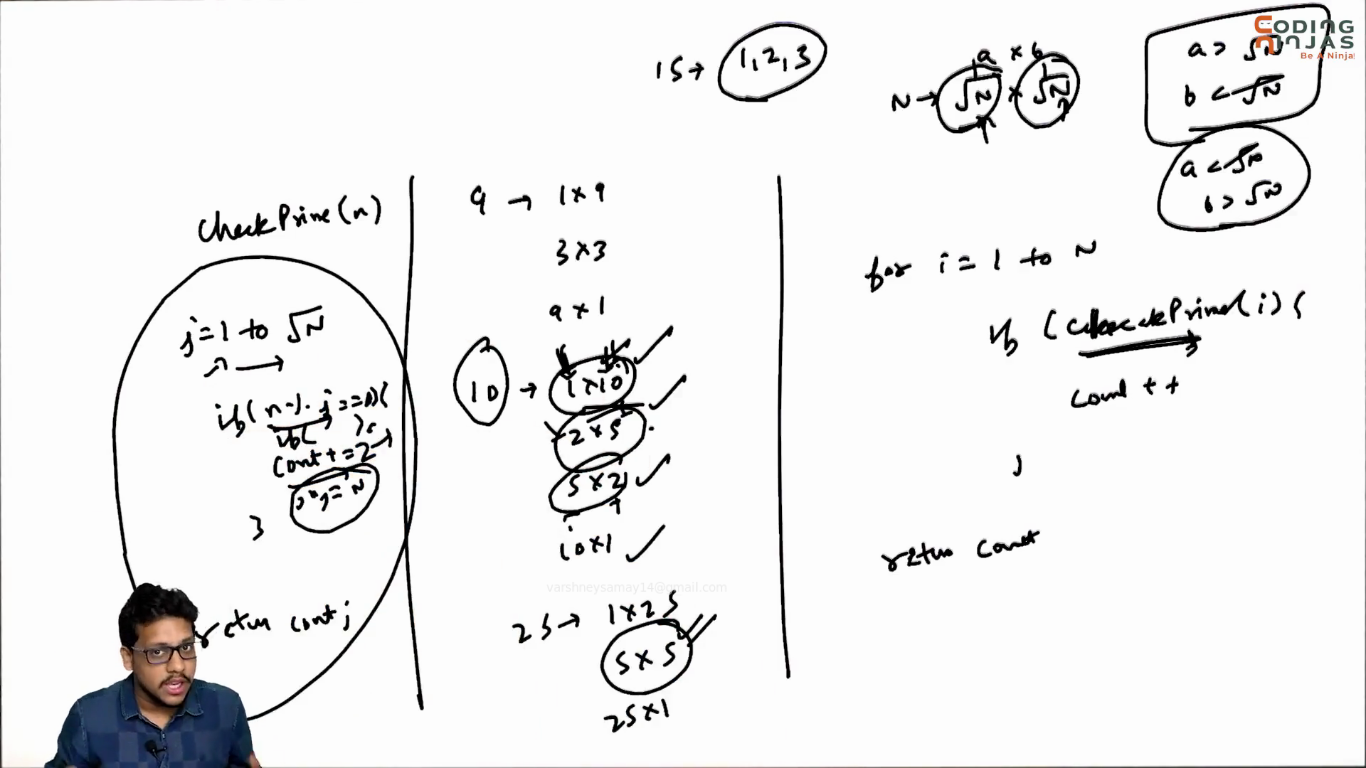 CODING
NINJAS
Be A Ninja!
15 → 1, 2, 3
a × b
N → √N × √N
a > √N
b < √N
a < √N
b > √N
checkPrime(n)
j = 1 to √N
if( n % j == 0) {
if( ) {
count += 2
j*j = N
}
return count;
9 → 1 × 9
3 × 3
9 × 1
10 → 1 × 10
2 × 5
5 × 2
10 × 1
varshneysamay14@gmail.com
25 → 1 × 25
5 × 5
25 × 1
for i = 1 to N
if (checkPrime(i) {
count ++
}
return count